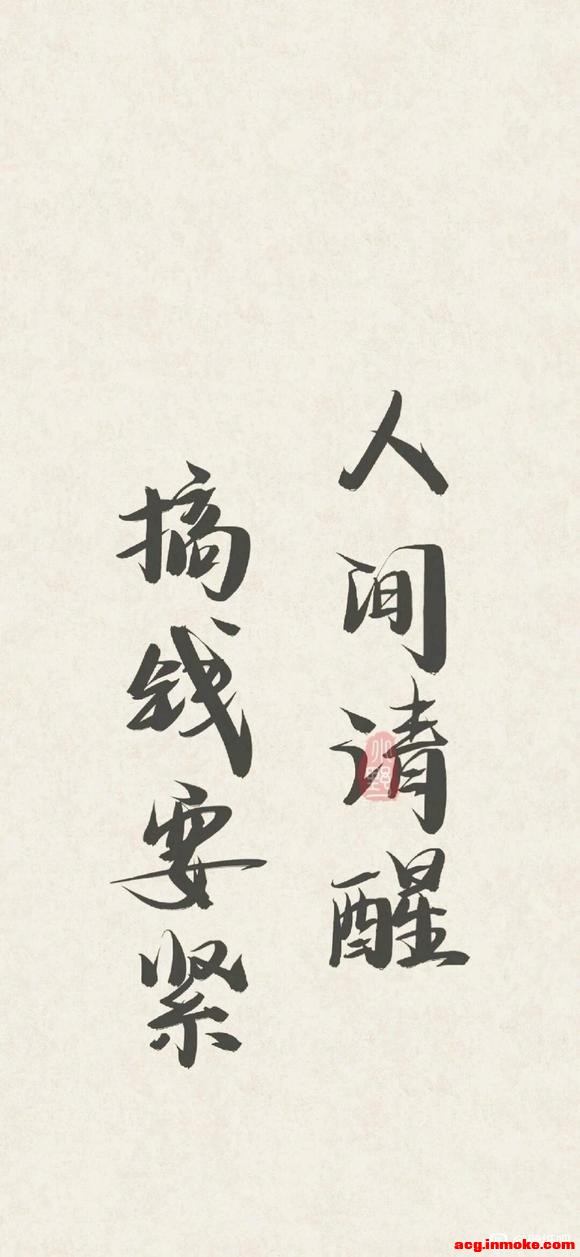 人间清醒
搞钱要紧
小野
acg.inmoke.com